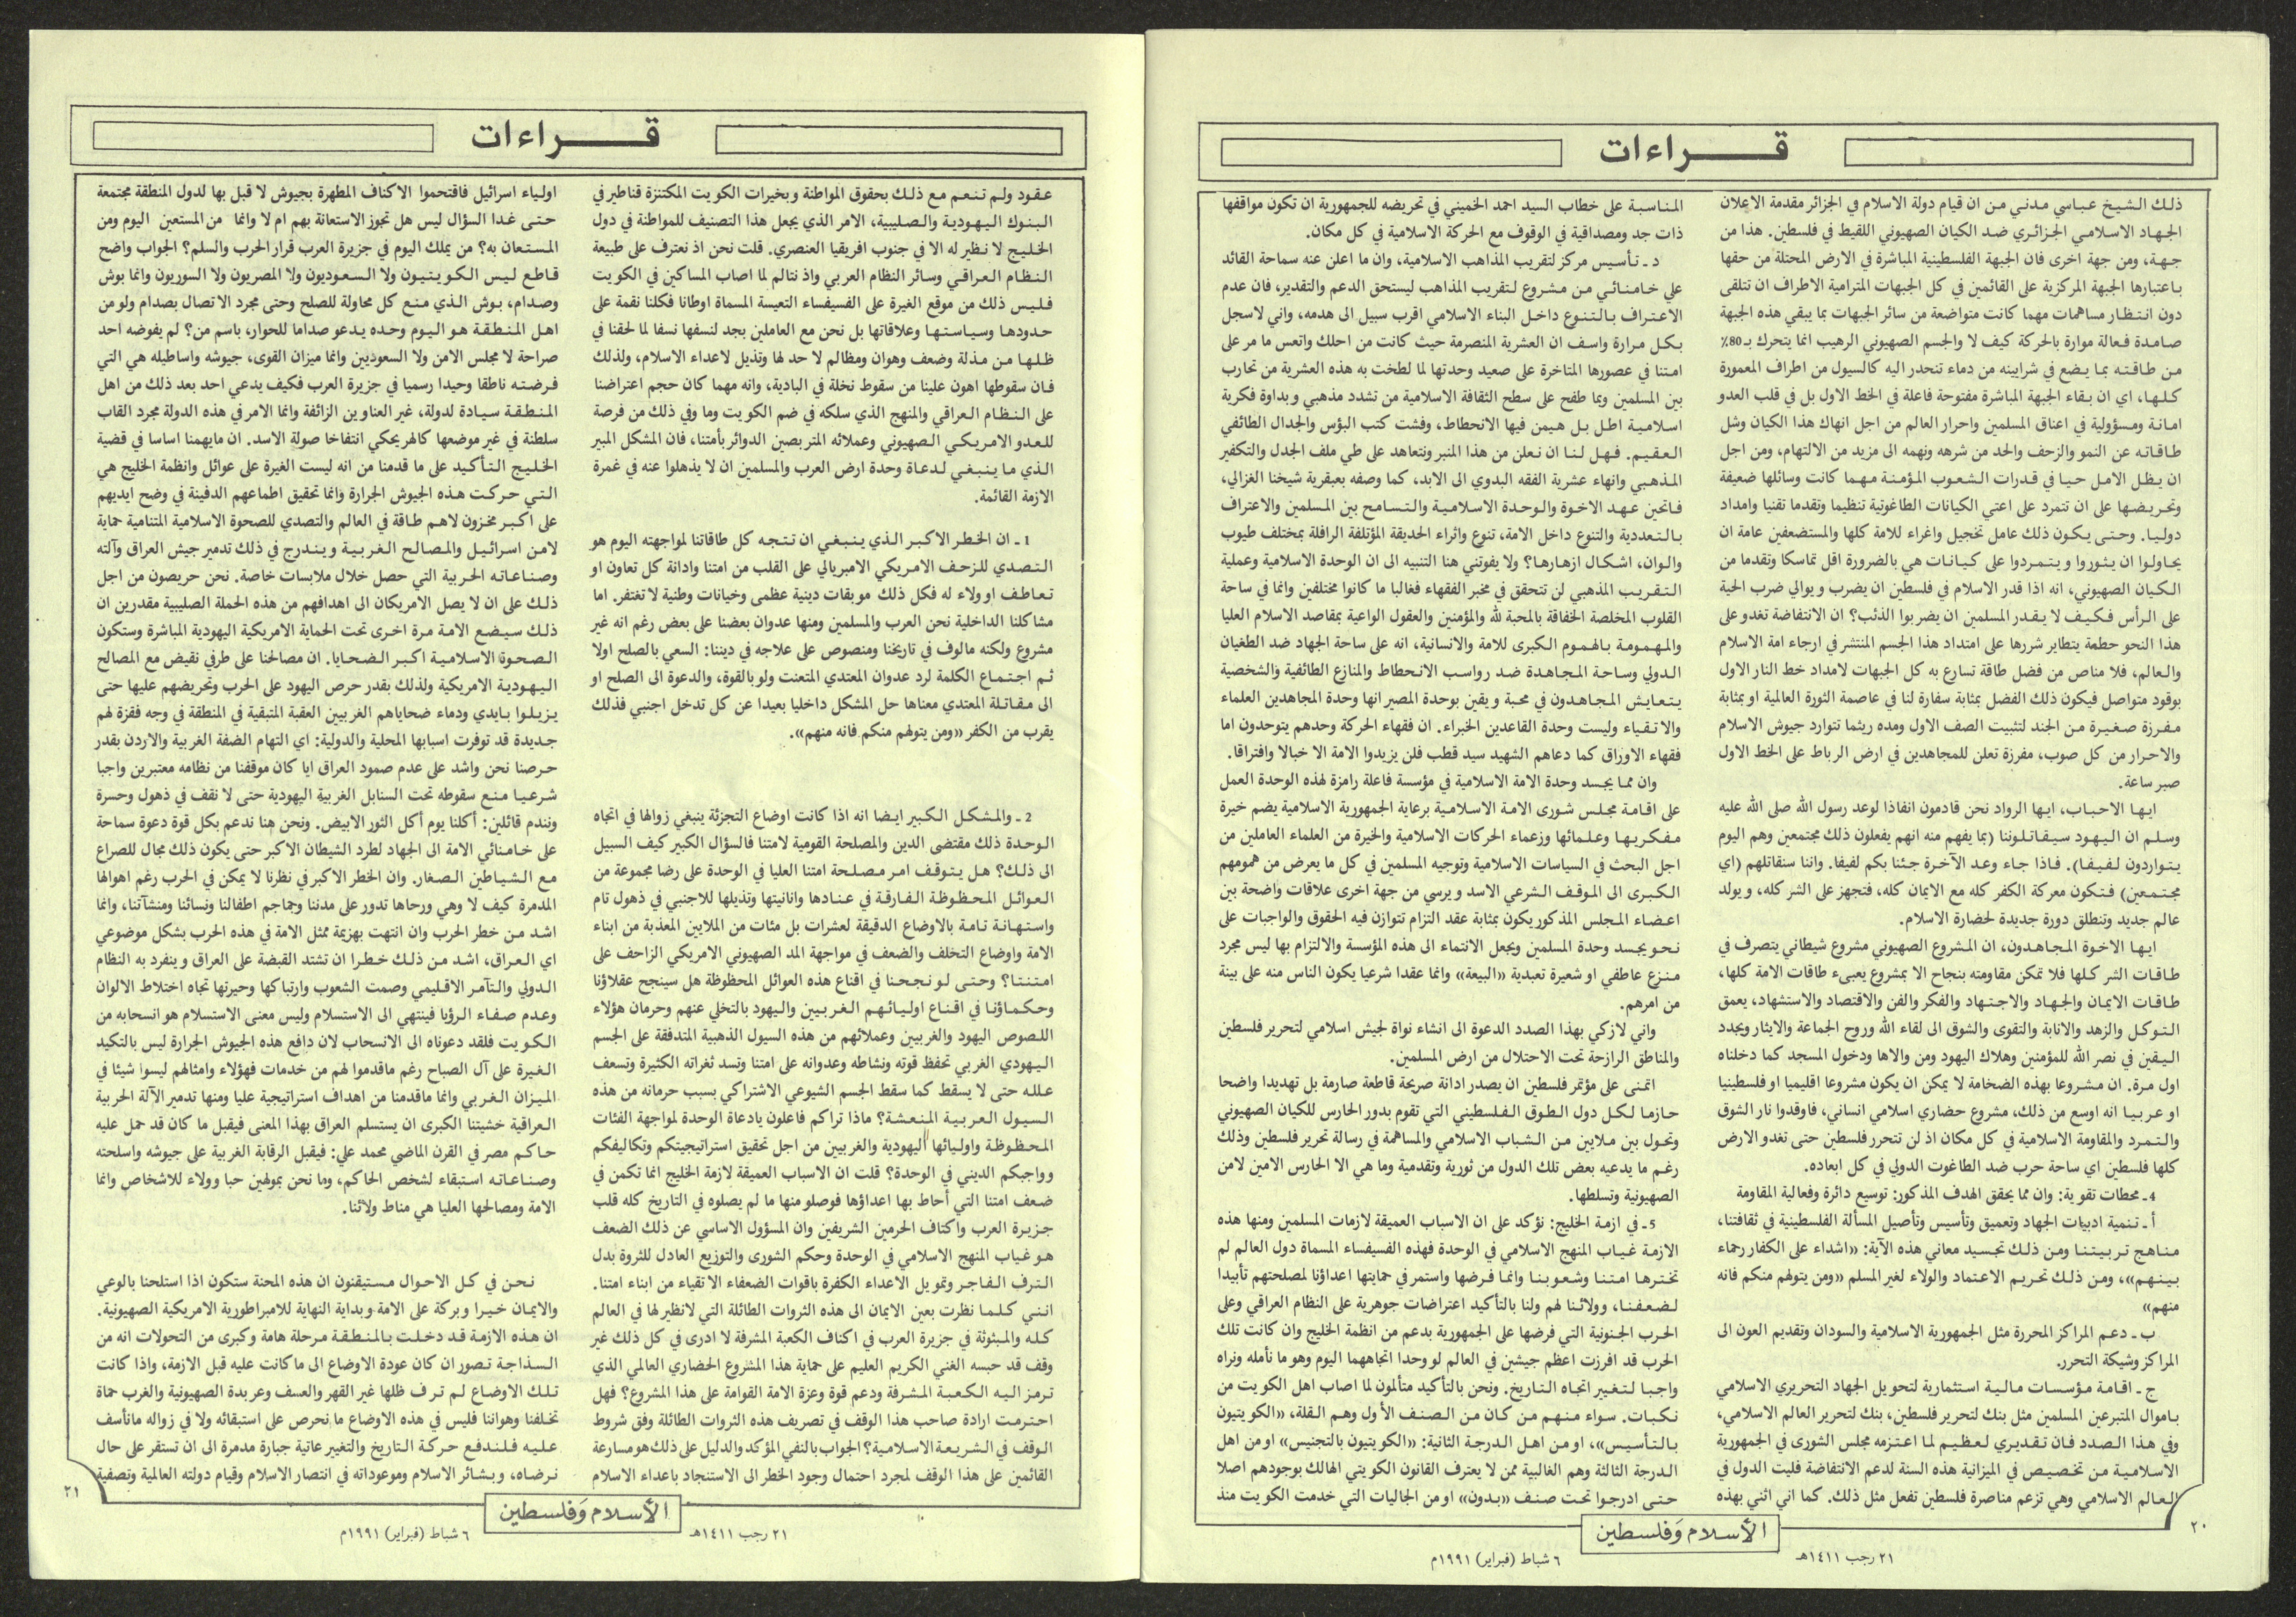 قـــراءات
ذلك الشيخ عباسي مدني من ان قيام دولة الاسلام في الجزائر مقدمة الاعلان
الجهاد الاسلامي الجزائري ضد الكيان الصهيوني اللقيط في فلسطين. هذا من
جهة، ومن جهة اخرى فان الجبهة الفلسطينية المباشرة في الارض المحتلة من حقها
باعتبارها الجبهة المركزية على القائمين في كل الجبهات المترامية الاطراف ان تتلقى
دون انتظار مساهمات مهما كانت متواضعة من سائر الجبهات بما يبقي هذه الجبهة
صامدة فعالة موارة بالحركة كيف لا والجسم الصهيوني الرهيب انما يتحرك بـ 80٪
من طاقته بما يضع في شرايينه من دماء تنحدر اليه كالسيول من اطراف المعمورة
كلها، اي ان بقاء الجبهة المباشرة مفتوحة فاعلة في الخط الاول بل في قلب العدو
امانة ومسؤولية في اعناق المسلمين واحرار العالم من اجل انهاك هذا الكيان وشل
طاقاته عن النمو والزحف والحد من شرهه ونهمه الى مزيد من الالتهام، ومن اجل
ان يظل الامل حيا في قدرات الشعوب المؤمنة مهما كانت وسائلها ضعيفة
وتحريضها على ان تتمرد على اعتى الكيانات الطاغوتية تنظيما وتقدما تقنيا وامداد
دوليا. وحتى يكون ذلك عامل تخجيل واغراء للامة كلها والمستضعفين عامة ان
يحاولوا ان يثوروا ويتمردوا على كيانات هي بالضرورة اقل تماسكا وتقدما من
الكيان الصهيوني، انه اذا قدر الاسلام في فلسطين ان يضرب ويوالي ضرب الحية
على الرأس فكيف لا يقدر المسلمين ان يضربوا الذئب؟ ان الانتفاضة تغدو على
هذا النحو حطمة يتطاير شررها على امتداد هذا الجسم المنتشر في ارجاء امة الاسلام
والعالم، فلا مناص من فضل طاقة تسارع به كل الجبهات لامداد خط النار الاول
بوقود متواصل فيكون ذلك الفضل بمثابة سفارة لنا في عاصمة الثورة العالمية او بمثابة
مفرزة صغيرة من الجند لتثبيت الصف الاول ومده ريثما تتوارد جيوش الاسلام
والاحرار من كل صوب، مفرزة تعلن للمجاهدين في ارض الرباط على الخط الاول
صبر ساعة.
ايها الاحباب، ايها الرواد نحن قادمون انفاذا لوعد رسول الله صلى الله عليه
وسلم ان اليهود سيقاتلوننا (بما يفهم منه انهم يفعلون ذلك مجتمعين وهم اليوم
يتواردون لفيفا). فاذا جاء وعد الآخرة جئنا بكم لفيفا. واننا سنقاتلهم (اي
مجتمعين) فتكون معركة الكفر كله مع الايمان كله، فتجهز على الشر كله، ويولد
عالم جديد وتنطلق دورة جديدة لحضارة الاسلام.
ايها الاخوة المجاهدون، ان المشروع الصهيوني مشروع شيطاني يتصرف في
طاقات الشر كلها فلا تمكن مقاومته بنجاح الا بمشروع يعبىء طاقات الامة كلها،
طاقات الايمان والجهاد والاجتهاد والفكر والفن والاقتصاد والاستشهاد، يعمق
التوكل والزهد والانابة والتقوى والشوق الى لقاء الله وروح الجماعة والايثار ويجدد
اليقين في نصر الله للمؤمنين وهلاك اليهود ومن والاها ودخول المسجد كما دخلناه
اول مرة. ان مشروعا بهذه الضخامة لا يمكن ان يكون مشروعا اقليميا او فلسطينيا
او عربيا انه اوسع من ذلك، مشروع حضاري اسلامي انساني، فاوقدوا نار الشوق
والتمرد والمقاومة الاسلامية في كل مكان اذ لن تتحرر فلسطين حتى تغدو الارض
كلها فلسطين اي ساحة حرب ضد الطاغوت الدولي في كل ابعاده.
4 ـ محطات تقوية: وان مما يحقق الهدف المذكور: توسيع دائرة وفعالية المقاومة
أ ـ تنمية ادبيات الجهاد وتعميق وتأسيس وتأصيل المسألة الفلسطينية في ثقافتنا،
مناهج تربيتنا ومن ذلك تجسيد معاني هذه الآية: «اشداء على الكفار رحماء
بينهم»، ومن ذلك تحريم الاعتماد والولاء لغير المسلم «ومن يتولهم منكم فانه
منهم»
ب ـ دعم المراكز المحررة مثل الجمهورية الاسلامية والسودان وتقديم العون الى
المراكز وشيكة التحرر.
ج ـ اقامة مؤسسات مالية استثمارية لتحويل الجهاد التحريري الاسلامي
باموال المتبرعين المسلمين مثل بنك لتحرير فلسطين، بنك لتحرير العالم الاسلامي،
وفي هذا الصدد فان تقديري لعظيم لما اعتزمه مجلس الشورى في الجمهورية
الاسلامية من تخصيص في الميزانية هذه السنة لدعم الانتفاضة فليت الدول في
العالم الاسلامي وهي تزعم مناصرة فلسطين تفعل مثل ذلك. كما اني اثني بهذه
المناسبة على خطاب السيد احمد الخميني في تحريضه للجمهورية ان تكون مواقفها
ذات جد ومصداقية في الوقوف مع الحركة الاسلامية في كل مكان.
د ـ تأسيس مركز لتقريب المذاهب الاسلامية، وان ما اعلن عنه سماحة القائد
علي خامنائي من مشروع لتقريب المذاهب ليستحق الدعم والتقدير، فان عدم
الاعتراف بالتنوع داخل البناء الاسلامي اقرب سبيل الى هدمه، واني لاسجل
بكل مرارة واسف ان العشرية المنصرمة حيث كانت من احلك واتعس ما مر على
امتنا في عصورها المتاخرة على صعيد وحدتها لما لطخت به هذه العشرية من تحارب
بين المسلمين وبما طفح على سطح الثقافة الاسلامية من تشدد مذهبي وبداوة فكرية
اسلامية اطل بل هيمن فيها الانحطاط، وفشت كتب البؤس والجدال الطائفي
العقيم. فهل لنا ان نعلن من هذا المنبر ونتعاهد على طي ملف الجدل والتكفير
المذهبي وانهاء عشرية الفقه البدوي الى الابد، كما وصفه بعبقرية شيخنا الغزالي،
فاتحين عهد الاخوة والوحدة الاسلامية والتسامح بين المسلمين والاعتراف
بالتعددية والتنوع داخل الامة، تنوع واثراء الحديقة المؤتلفة الرافلة بمختلف طيوب
والوان، اشكال ازهارها؟ ولا يفوتني هنا التنبيه الى ان الوحدة الاسلامية وعملية
التقريب المذهبي لن تتحقق في مخبر الفقهاء فغالبا ما كانوا مختلفين وانما في ساحة
القلوب المخلصة الخفاقة بالمحبة لله والمؤمنين والعقول الواعية بمقاصد الاسلام العليا
والمهمومة بالهموم الكبرى للامة والانسانية، انه على ساحة الجهاد ضد الطغيان
الدولي وساحة المجاهدة ضد رواسب الانحطاط والمنازع الطائفية والشخصية
يتعايش المجاهدون في محبة ويقين بوحدة المصير انها وحدة المجاهدين العلماء
والاتقياء وليست وحدة القاعدين الخبراء. ان فقهاء الحركة وحدهم يتوحدون اما
فقهاء الاوراق كما دعاهم الشهيد سيد قطب فلن يزيدوا الامة الا خبالا وافتراقا.
وان مما يجسد وحدة الامة الاسلامية في مؤسسة فاعلة رامزة لهذه الوحدة العمل
على اقامة مجلس شورى الامة الاسلامية برعاية الجمهورية الاسلامية يضم خيرة
مفكريها وعلمائها وزعماء الحركات الاسلامية والخيرة من العلماء العاملين من
اجل البحث في السياسات الاسلامية وتوجيه المسلمين في كل ما يعرض من همومهم
الكبرى الى الموقف الشرعي الاسد ويرسي من جهة اخرى علاقات واضحة بين
اعضاء المجلس المذكور يكون بمثابة عقد التزام تتوازن فيه الحقوق والواجبات على
نحو يجسد وحدة المسلمين ويجعل الانتماء الى هذه المؤسسة والالتزام بها ليس مجرد
منزع عاطفي او شعيرة تعبدية «البيعة» وانما عقدا شرعيا يكون الناس منه على بينة
من امرهم.
واني لازكي بهذا الصدد الدعوة الى انشاء نواة لجيش اسلامي لتحرير فلسطين
والمناطق الرازحة تحت الاحتلال من ارض المسلمين.
اتمنى على مؤتمر فلسطين ان يصدر ادانة صريحة قاطعة صارمة بل تهديدا واضحا
حازما لكل دول الطوق الفلسطيني التي تقوم بدور الحارس للكيان الصهيوني
وتحول بين ملايين من الشباب الاسلامي والمساهمة في رسالة تحرير فلسطين وذلك
رغم ما يدعيه بعض تلك الدول من ثورية وتقدمية وما هي الا الحارس الامين لامن
الصهيونية وتسلطها.
5 ـ في ازمة الخليج: نؤكد على ان الاسباب العميقة لازمات المسلمين ومنها هذه
الازمة غياب المنهج الاسلامي في الوحدة فهذه الفسيفساء المسماة دول العالم لم
تخترها امتنا وشعوبنا وانما فرضها واستمر في حمايتها اعداؤنا لمصلحتهم تأبيدا
لضعفنا، وولائنا لهم ولنا بالتأكيد اعتراضات جوهرية على النظام العراقي وعلى
الحرب الجنونية التي فرضها على الجمهورية بدعم من انظمة الخليج وان كانت تلك
الحرب قد افرزت اعظم جيشين في العالم لو وحدا اتجاههما اليوم وهو ما نأمله ونراه
واجبا لتغيير اتجاه التاريخ. ونحن بالتأكيد متألمون لما اصاب اهل الكويت من
نكبات. سواء منهم من كان من الصنف الأول وهم القلة، «الكويتيون
بالتأسيس»، او من اهل الدرجة الثانية: «الكويتيون بالتجنيس» او من اهل
الدرجة الثالثة وهم الغالبية ممن لا يعترف القانون الكويتي الهالك بوجودهم اصلا
حتى ادرجوا تحت صنف «بدون» او من الجاليات التي خدمت الكويت منذ
٢٠
الأسلام وَفلسطين
٢١ رجب ١٤١١هـ
٦ شباط (فبراير) ١٩٩١م
قـــراءات
عقود ولم تنعم مع ذلك بحقوق المواطنة وبخيرات الكويت المكتنزة قناطير في
البنوك اليهودية والصليبية، الامر الذي يجعل هذا التصنيف للمواطنة في دول
الخليج لا نظير له الا في جنوب افريقيا العنصري. قلت نحن اذ نعترف على طبيعة
النظام العراقي وسائر النظام العربي واذ نتالم لما اصاب المساكين في الكويت
فليس ذلك من موقع الغيرة على الفسيفساء التعيسة المسماة اوطانا فكلنا نقمة على
حدودها وسياستها وعلاقاتها بل نحن مع العاملين بجد لنسفها نسفا لما لحقنا في
ظلها من مذلة وضعف وهوان ومظالم لا حد لها وتذيل لاعداء الاسلام، ولذلك
فان سقوطها اهون علينا من سقوط نخلة في البادية، وانه مهما كان حجم اعتراضنا
على النظام العراقي والمنهج الذي سلكه في ضم الكويت وما وفي ذلك من فرصة
للعدو الامريكي الصهيوني وعملائه المتربصين الدوائر بأمتنا، فان المشكل المبير
الذي ما ينبغي لدعاة وحدة ارض العرب والمسلمين ان لا يذهلوا عنه في غمرة
الازمة القائمة.
1 ـ ان الخطر الاكبر الذي ينبغي ان تتجه كل طاقاتنا لمواجهته اليوم هو
التصدي للزحف الامريكي الامبريالي على القلب من امتنا وادانة كل تعاون او
تعاطف او ولاء له فكل ذلك موبقات دينية عظمى وخيانات وطنية لا تغتفر. اما
مشاكلنا الداخلية نحن العرب والمسلمين ومنها عدوان بعضنا على بعض رغم انه غير
مشروع ولكنه مالوف في تاريخنا ومنصوص على علاجه في ديننا: السعي بالصلح اولا
ثم اجتماع الكلمة لرد عدوان المعتدي المتعنت ولو بالقوة، والدعوة الى الصلح او
الى مقاتلة المعتدي معناها حل المشكل داخليا بعيدا عن كل تدخل اجنبي فذلك
يقرب من الكفر «ومن يتولهم منكم فانه منهم».
2 ـ والمشكل الكبير ايضا انه اذا كانت اوضاع التجزئة ينبغي زوالها في اتجاه
الوحدة ذلك مقتضى الدين والمصلحة القومية لامتنا فالسؤال الكبير كيف السبيل
الى ذلك؟ هل يتوقف امر مصلحة امتنا العليا في الوحدة على رضا مجموعة من
العوائل المحظوظة الفارقة في عنادها وانانيتها وتذيلها للاجنبي في ذهول تام
واستهانة تامة بالاوضاع الدقيقة لعشرات بل مئات من الملايين المعذبة من ابناء
الامة واوضاع التخلف والضعف في مواجهة المد الصهيوني الامريكي الزاحف على
امتنتا؟ وحتى لو نجحنا في اقناع هذه العوائل المحظوظة هل سينجح عقلاؤنا
وحكماؤنا في اقناع اوليائهم الغربيين واليهود بالتخلي عنهم وحرمان هؤلاء
اللصوص اليهود والغربيين وعملائهم من هذه السيول الذهبية المتدفقة على الجسم
اليهودي الغربي تحفظ قوته ونشاطه وعدوانه على امتنا وتسد ثغراته الكثيرة وتسعف
علله حتى لا يسقط كما سقط الجسم الشيوعي الاشتراكي بسبب حرمانه من هذه
السيول العربية المنعشة؟ ماذا تراكم فاعلون يادعاة الوحدة لمواجهة الفئات
المحظوظة واوليائها اليهودية والغربيين من اجل تحقيق استراتيجيتكم وتكاليفكم
وواجبكم الديني في الوحدة؟ قلت ان الاسباب العميقة لازمة الخليج انما تكمن في
ضعف امتنا التي أحاط بها اعداؤها فوصلو منها ما لم يصلوه في التاريخ كله قلب
جزيرة العرب واكتاف الحرمين الشريفين وان المسؤول الاساسي عن ذلك الضعف
هو غياب المنهج الاسلامي في الوحدة وحكم الشورى والتوزيع العادل للثروة بدل
الترف الفاجر وتمويل الاعداء الكفرة باقوات الضعفاء الاتقياء من ابناء امتنا.
انني كلما نظرت بعين الايمان الى هذه الثروات الطائلة التي لانظير لها في العالم
كله والمبثوثة في جزيرة العرب في اكناف الكعبة المشرفة لا ادرى في كل ذلك غير
وقف قد حبسه الغني الكريم العليم على حماية هذا المشروع الحضاري العالمي الذي
ترمز اليه الكعبة المشرفة ودعم قوة وعزة الامة القوامة على هذا المشروع؟ فهل
احترمت ارادة صاحب هذا الوقف في تصريف هذه الثروات الطائلة وفق شروط
الوقف في الشريعة الاسلامية؟ الجواب بالنفي المؤكد والدليل على ذلك هو مسارعة
القائمين على هذا الوقف لمجرد احتمال وجود الخطر الى الاستنجاد باعداء الاسلام
اولياء اسرائيل فاقتحموا الاكناف المطهرة بجيوش لا قبل بها لدول المنطقة مجتمعة
حتى غدا السؤال ليس هل تجوز الاستعانة بهم ام لا وانما من المستعين اليوم ومن
المستعان به؟ من يملك اليوم في جزيرة العرب قرار الحرب والسلم؟ الجواب واضح
قاطع ليس الكويتيون ولا السعوديون ولا المصريون ولا السوريون وانما بوش
وصدام، بوش الذي منع كل محاولة للصلح وحتى مجرد الاتصال بصدام ولو من
اهل المنطقة هو اليوم وحده يدعو صداما للحوار، باسم من؟ لم يفوضه احد
صراحة لا مجلس الامن ولا السعوديين وانما ميزان القوى، جيوشه واساطيله هي التي
فرضته ناطقا وحيدا رسميا في جزيرة العرب فكيف يدعي احد بعد ذلك من اهل
المنطقة سيادة لدولة، غير العناوين الزائفة وانما الامر في هذه الدولة مجرد القاب
سلطنة في غير موضعها كالهر يحكي انتفاخا صولة الاسد. ان مايهمنا اساسا في قضية
الخليج التأكيد على ما قدمنا من انه ليست الغيرة على عوائل وانظمة الخليج هي
التي حركت هذه الجيوش الجرارة وانما تحقيق اطماعهم الدفينة في وضع ايديهم
على اكبر مخزون لاهم طاقة في العالم والتصدي للصحوة الاسلامية المتنامية حماية
لامن اسرائيل والمصالح الغربية ويندرج في ذلك تدمير جيش العراق وآلته
وصناعاته الحربية التي حصل خلال ملابسات خاصة. نحن حريصون من اجل
ذلك على ان لا يصل الامريكان الى اهدافهم من هذه الحملة الصليبية مقدرين ان
ذلك سيضع الامة مرة اخرى تحت الحماية الامريكية اليهودية المباشرة وستكون
الصحوة الاسلامية اكبر الضحايا. ان مصالحنا على طرفي نقيض مع المصالح
اليهودية الامريكية ولذلك بقدر حرص اليهود على الحرب وتحريضهم عليها حتى
يزيلوا بايدي ودماء ضحاياهم الغربيين العقبة المتبقية في المنطقة في وجه قفزة لهم
جديدة قد توفرت اسبابها المحلية والدولية: اي التهام الضفة الغربية والاردن بقدر
حرصنا نحن واشد على عدم صمود العراق ايا كان موقفنا من نظامه معتبرين واجبا
شرعيا منع سقوطه تحت السنابل الغربية اليهودية حتى لا نقف في ذهول وحسرة
ونندم قائلين: أكلنا يوم أكل الثور الابيض. ونحن هنا ندعم بكل قوة دعوة سماحة
علي خامنائي الامة الى الجهاد لطرد الشيطان الاكبر حتى يكون ذلك مجال للصراع
مع الشياطين الصغار. وان الخطر الاكبر في نظرنا لا يمكن في الحرب رغم اهوالها
المدمرة كيف لا وهي ورحاها تدور على مدننا وجماجم اطفالنا ونسائنا ومنشآتنا، وانما
اشد من خطر الحرب وان انتهت بهزيمة ممثل الامة في هذه الحرب بشكل موضوعي
اي العراق، اشد من ذلك خطرا ان تشتد القبضة على العراق وينفرد به النظام
الدولي والتآمر الاقليمي وصمت الشعوب وارتباكها وحيرتها تجاه اختلاط الالوان
وعدم صفاء الرؤيا فينتهي الى الاستسلام وليس معنى الاستسلام هو انسحابه من
الكويت فلقد دعوناه الى الانسحاب لان دافع هذه الجيوش الجرارة ليس بالتكيد
الغيرة على آل الصباح رغم ماقدموا لهم من خدمات فهؤلاء وامثالهم ليسوا شيئا في
الميزان الغربي وانما ماقدمنا من اهداف استراتيجية عليا ومنها تدمير الآلة الحربية
العراقية خشيتنا الكبرى ان يستسلم العراق بهذا المعنى فيقبل ما كان قد حمل عليه
حاكم مصر في القرن الماضي محمد علي: فيقبل الرقابة الغربية على جيوشه واسلحته
وصناعاته استبقاء لشخص الحاكم، وما نحن بمولهين حبا وولاء للاشخاص وانما
الامة ومصالحها العليا هي مناط ولائنا.
نحن في كل الاحوال مستيقنون ان هذه المحنة ستكون اذا استلحنا بالوعي
والايمان خيرا وبركة على الامة وبداية النهاية للامبراطورية الامريكية الصهيونية.
ان هذه الازمة قد دخلت بالمنطقة مرحلة هامة وكبرى من التحولات انه من
السذاجة تصور ان كان عودة الاوضاع الى ما كانت عليه قبل الازمة، واذا كانت
تلك الاوضاع لم ترف ظلها غير القهر والعسف وعربدة الصهيونية والغرب حماة
تخلفنا وهواننا فليس في هذه الاوضاع ما نحرص على استبقائه ولا في زواله مانأسف
عليه فلندفع حركة التاريخ والتغيير عاتية جبارة مدمرة الى ان تستقر على حال
نرضاه، وبشائر الاسلام وموعوداته في انتصار الاسلام وقيام دولته العالمية وتصفية
٢١
الأسلام وَفلسطين
٢١ رجب ١٤١١هـ
٦ شباط (فبراير) ١٩٩١م